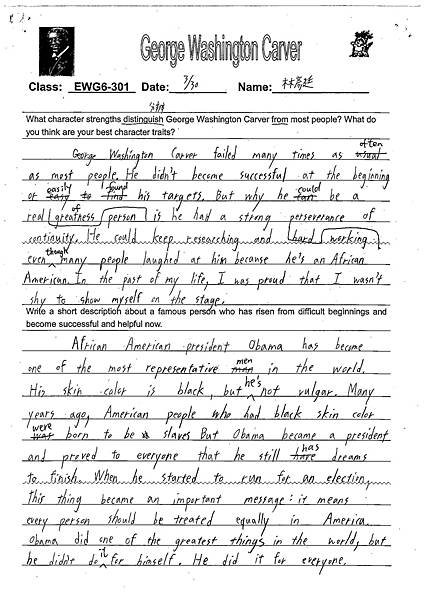 George Washington Carver
Class: EWG6-301 Date: 3/30 Name: 林
What character strengths distinguish George Washington Carver from most people? What do
you think are your best character traits?
often
George Washington Carver failed many times as usual
as most people. He didn't become successful at the beginning
easily found could
or easy to find his targets. But why he can be a
of
real greatness person is he had a strong perseverance of
continuity. He could keep researching and hard working
though
even many people laughed at him because he's an African
American. In the past of my life, I was proud that I wasn't
shy to show myself on the stage.
Write a short description about a famous person who has risen from difficult beginnings and
become successful and helpful now.
African American president Obama has become
men
one of the most representative man in the world.
he's
His skin color is black, but not vulgar. Many
years ago, American people who had black skin color
were
was born to be slaves But Obama became a president
has
and proved to everyone that he still have dreams
to finish. When he started to run for an election,
this thing became an important message: it means
every person should be treated equally in America.
Obama did one of the greatest things in the world, but
it
he didn't do for himself. He did it for everyone.